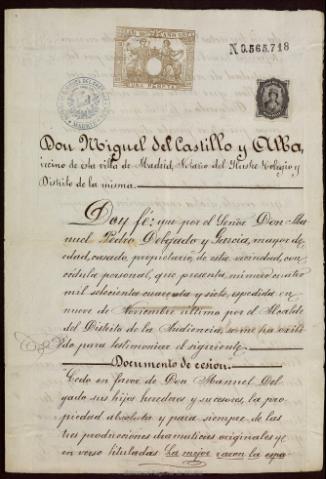 N 0.565.718
Don Miguel del Castillo y Alba,
vecino de esta villa de Madrid, Notario del Ilustre Colegio y
Distrito de la misma.
Doy fé: que por el Señor Don Ma-
nuel Pedro Delgado y Garcia, mayor de
edad, casado, propietario, de esta vecindad, con
cédula personal, que presenta, numero cuatro
mil setecientos cuarenta y siete, espedida en
nueve de Noviembre último por el Alcalde
del Distrito de la Audiencia, se me ha exhibi-
do para testimoniar el siguiente
Documento de cesion.
Cedo en favor de Don Manuel Del-
gado sus hijos herederos y sucesores, la pro-
piedad absoluta y para siempre de las
tres producciones dramaticas originales y
en verso tituladas La mejor razon la espa-